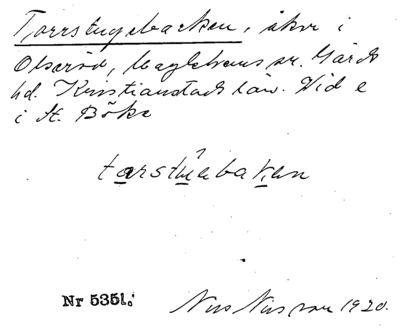 Torrstugebacken, åkr i
Olseröd, Maglehems sn. Gärds
hd. Kristianstads län. Vid e
i St. Böke
tarstuebaken
Nr 5351.
Nils Nilsson 1920.